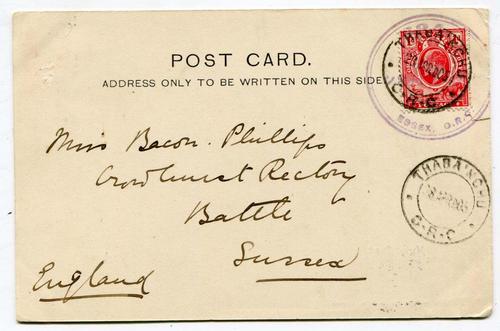 POST CARD.
ADDRESS ONLY TO BE WRITTEN ON THIS SIDE
THABA'NCHU
O.R.C.
ESSEX, O.R.C.
Miss Bacon-Phillips
Crowhurst Rectory
Battle
Sussex
England
THABA'NCHU
O.R.C